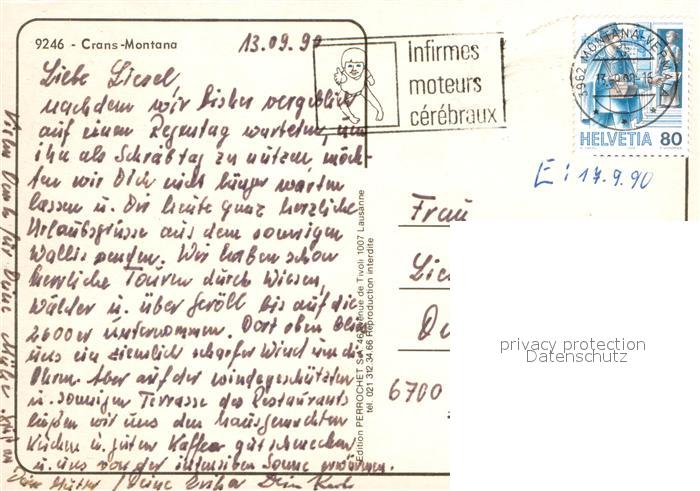 9246 - Crans-Montana
13.09.90
Liebe Liesel,
nachdem wir bisher vergeblich
auf einen Regentag warteten, um
ihn als Schreibtag zu nützen, möch-
ten wir Dich nicht länger warten
lassen u. Dir heute ganz herzliche
Urlaubsgrüsse aus dem sonnigen
Wallis senden. Wir haben schon
herrliche Touren durch Wiesen,
Wälder u. über Geröll bis auf die
2600er unternommen. Dort oben blies
uns ein ziemlich scharfer Wind um die
Ohren. Aber auf der windgeschützten
u. sonnigen Terrasse des Restaurants
ließen wir uns den hausgemachten
Kuchen u. guten Kaffee gut schmecken
u. uns von der intensiven Sonne erwärmen.
Vielen Dank für Deine
Deine Erika
Edition PERROCHET S.A. 46, avenue de Tivoli 1007 Lausanne
tél. 021 312.34.66 Reproduction interdite
Infirmes
moteurs
cérébraux
3962 MONTANA-VERMALA
HELVETIA 80
E: 17.9.90
Frau
Lies
6700
privacy protection
Datenschutz